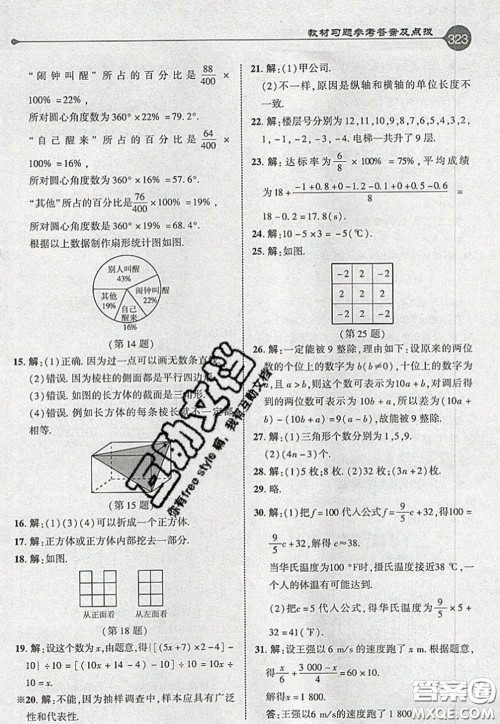 教材习题参考答案及点拨 323
“闹钟叫醒”所占的百分比是 88/400
×100% =22%。
所对圆心角度数为360°×22% =79.2°.
“自己醒来”所占的百分比是 64/400
×100% =16%,
所对圆心角度数为360°×16% =57.6°.
“其他”所占的百分比是 76/400 ×100% =19%,
所对圆心角度数为360°×19% =68.4°.
根据以上数据制作扇形统计图如图.
别人叫醒
43%
其他
19%
闹钟叫醒
22%
自己
醒来
16%
(第14题)
15. 解:(1)正确. 因为过一点可以画无数条直
(2)错误. 因为棱柱的侧面都是平行四边
(3)错误. 如图的长方体的截面是三角形.
(4)错误. 例如长方体的每条棱长就不一定
相等.
(第15题)
16. 解:(1)(3)(4)可以折成一个正方体.
17. 解:正方体或正方体内部挖去一部分.
18. 解:如图.
从正面看 从左面看
(第18题)
19. 解:设这个数为x,由题意,得{[(5x+7)×2-4]-
10}÷10=[(10x+14-4)-10]÷10=x.
※20. 解:不能,因为抽样调查中,样本应具有广泛
性和代表性.
21. 解:(1)甲公司.
(2)不一样,原因是纵轴和横轴的单位长度不
一致.
22. 解:楼层号分别为12,11,10,9,8,7,6,5,3,2,
1,-1,-2,-3,-4. 电梯一共升了9层.
23. 解:达标率为 6/8 ×100% =75%,平均成绩
为18+ (-1+0.8+0-1.2-0.1+0+0.5-0.6)/8 =
18-0.2=17.8(s).
24. 解:10-5×3=-5(℃).
25. 解:如图.
-2 -2 -2
-2 2 2
-2 2 2
(第25题)
26. 解:一定能被9整除,理由如下:设原来的两位
数的个位上的数字为b(b≠0),十位上的数字为
a,且a>b,则这个数可表示为10a+b,对调后得
到的两位数可表示为10b+a,所以这两个数的差为
(10a+b)-(10b+a)=9(a-b),故能被9整除.
27. 解:(1)三角形个数分别为1,5,9.
(2)(4n-3)个.
28. 解:(1)5枚;8枚. (2)32枚;(3n+2)枚.
29. 略.
30. 解:(1)把f=100代人公式f= 9/5 c+32,得100
= 9/5 c+32,解得c≈38.
当华氏温度为100°F时,摄氏温度约为38℃,一
个人的体温有可能达到.
(2)把c=0代入公式f= 9/5 c+32,得f= 9/5 ×
0+32=32(°F).
31. 解:设王强以6米/s的速度跑了x m. 根据题意,
得 x/6 + (3 000-x)/4 =60×10.
解得x=1 800.
答:王强以6米/s的速度跑了1 800
互助文档
你有free style 嘛,我有互助文档
答案圈
MXQE.COM